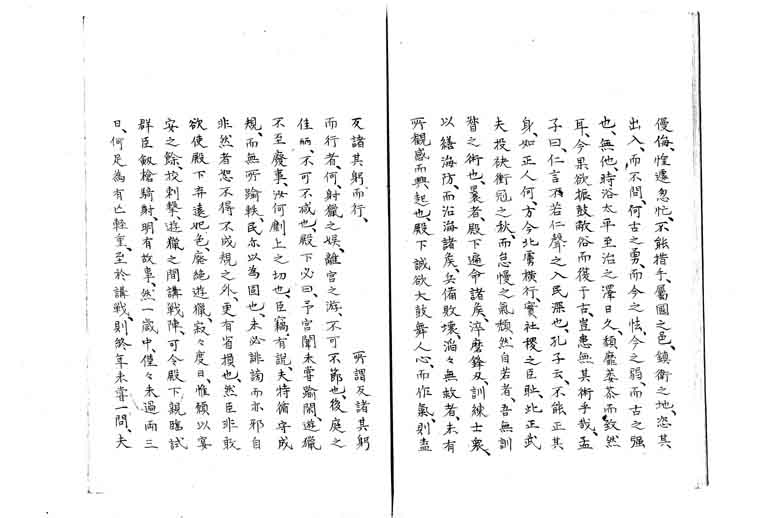 優侮、惶遽忽忙、不能措手、屬國之邑、鎮衛之地、恣其
出入、而不問、何古之勇、而今之怯、今之弱、而古之强
也、無他、時浴太平至治之澤日久、頽靡萎苶而致然
耳、今果欲振皷敝俗、而復于古、豈患無其術乎哉、孟
子曰、仁言不若仁聲之入民深也、孔子云、不能正其
身、如正人何、方今北虜横行、實社稷之臣耻、此正武
夫投袂衝冠之秋、而怠慢之氣頽然自若者、吾無訓
督之術也、曩者、殿下遍命諸矦、淬磨鋒刄、訓練士衆、
以繕海防、而沿海諸矦、兵備敗壞、滔々無救者、未有
所觀感而興起也、殿下誠欲大鼓舞人心、而作氣、則盍
反諸其躬而行、
所謂反諸其躬
而行者何、射獵之娯、離宮之游、不可不節也、後庭之
佳麗、不可不减也、殿下必曰、予宮闈未嘗踰閑、遊獵
不至廢事、汝何劘上之切也、臣竊有説、夫特循守成
規、而無所踰軼、民亦以為固也、未必誹謗而亦邪自
非然者、恐不得不成規之外、更有省損也、然臣非敢
欲使殿下弃遠妃色、廢絶遊獵、寂々度日、惟傾以宴
安之餘、校刺擊、遊獵之間講戰陣、可令殿下親臨試
群臣劔槍騎射、明有故事、然一歳中、僅々未過兩三
日、何足為有亡軽重、至於講戰、則終年未嘗一問、夫